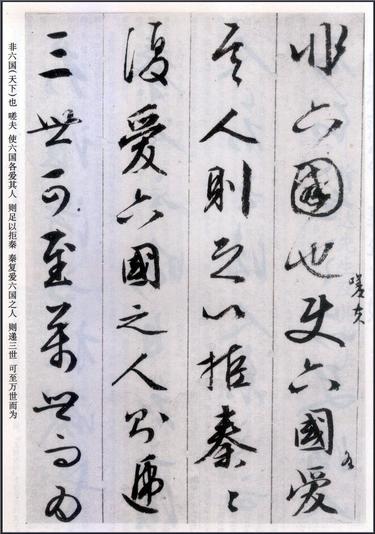 非六國也使六國愛
嗟夫
各
其人則足以拒秦〻
復愛六國之人則遞
三世可至萬世而為
非六国(天下)也 嗟夫 使六国各爱其人 则足以拒秦 秦复爱六国之人 则递三世 可至万世而为